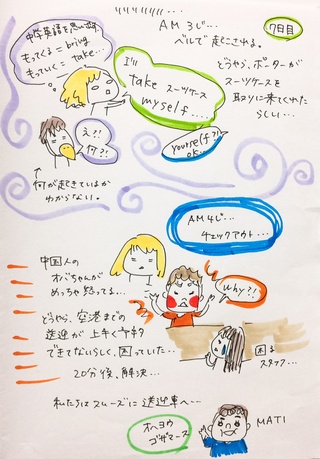 リリリリリリ…
AM 3じ…
7日目
ベルで起こされる。
中学英語を思い出す…
もってくる=bring
もっていく=take…
I'll
take スーツケース
myself……
どうやら、ポーターが
スーツケースを
取りに来てくれた
らしい…
え?!
何?!
yourself?!
OK…
↑
何が起きているか
わからない。
AM4じ…
チェックアウト…
中国人の
オバちゃんが
めっちゃ怒ってる…
why?!
どうやら、空港までの
送迎が上手く予約
できてないらしく、困っていた…
困る
スタッフ…
20分後、解決…
私たちはスムーズに送迎車へ…
オハヨウ
ゴザマース
MATI